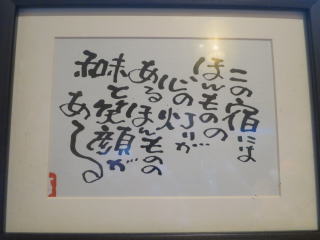 この宿には
ほんものの
心の灯りが
あるほんもの
味と笑顔が
ある